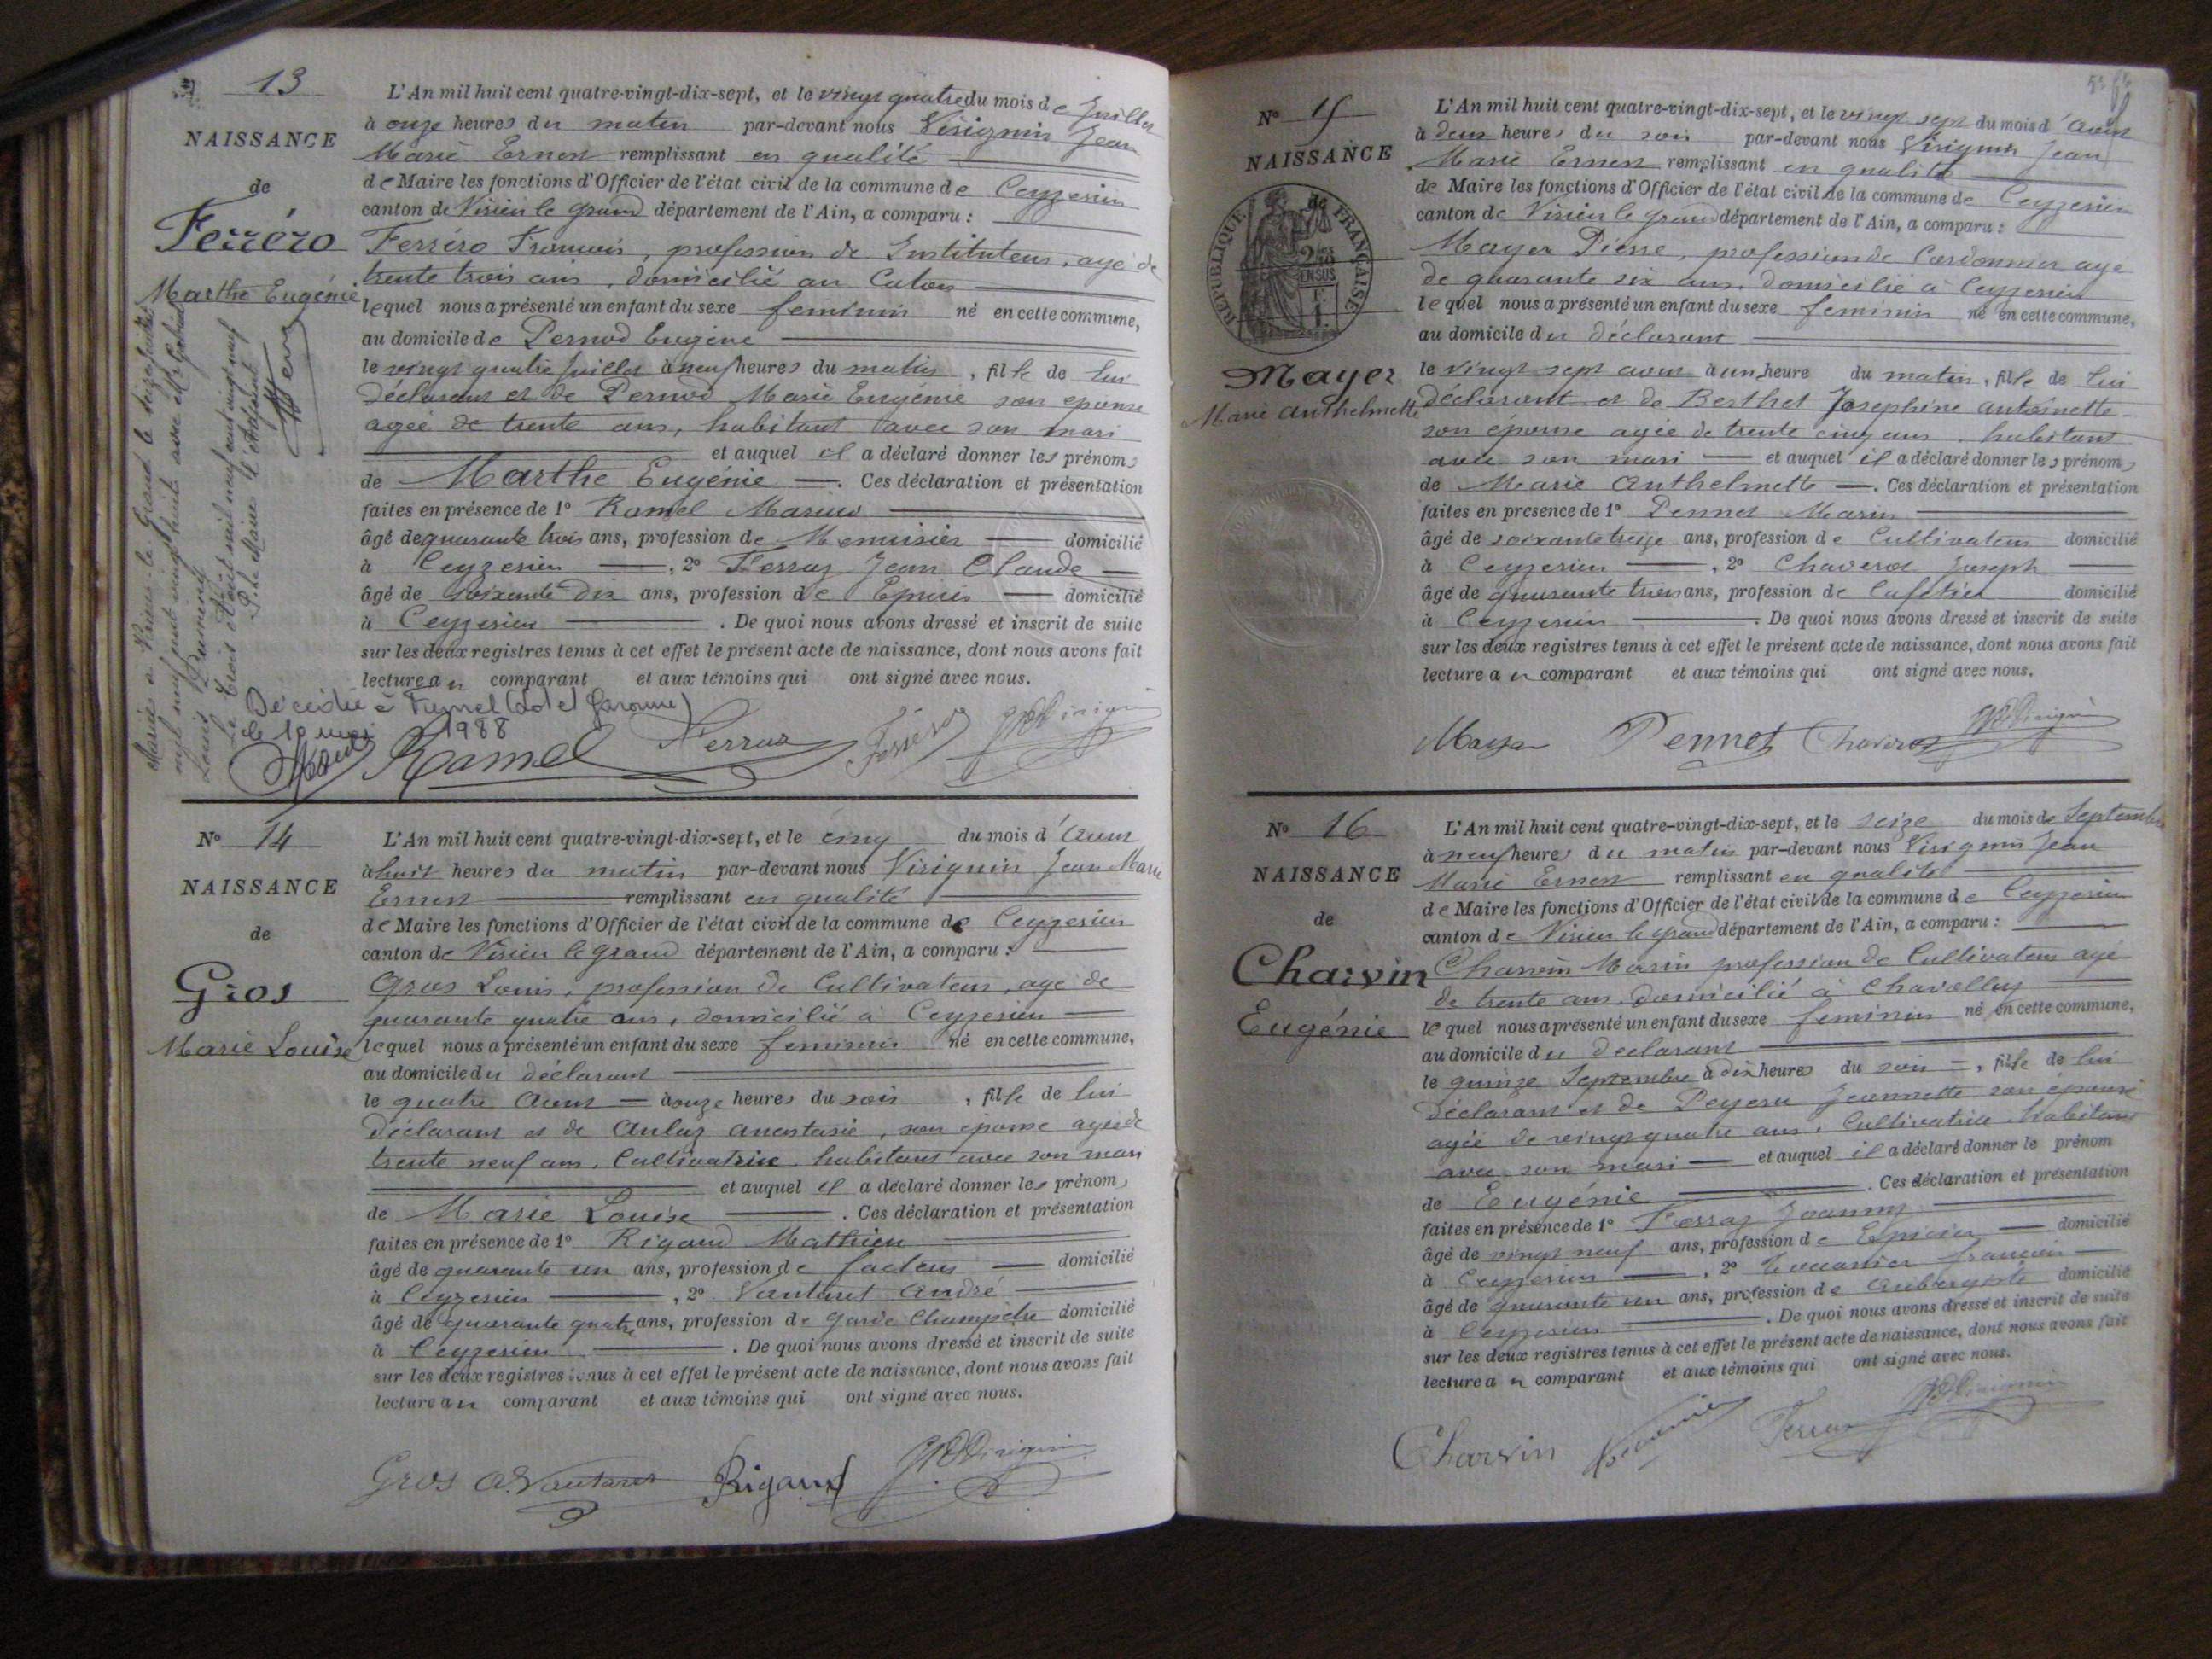 13
NAISSANCE
de
Ferréro
Marthe Eugénie
Mariée à Virieu-le-Grand le seize juillet
mil neuf cent vingt huit avec Mr Gabriel
Louis
Le trois Août mil neuf cent vingt neuf
P. le Maire l'Adjoint
L'An mil huit cent quatre-vingt-dix-sept, et le vingt quatre du mois de Juillet
à onze heures du matin par-devant nous Virignin Jean
Marie Ernest remplissant en qualité
de Maire les fonctions d'Officier de l'état civil de la commune de Ceyzerieu
canton de Virieu le grand département de l'Ain, a comparu :
Ferréro François, profession de Instituteur, agé de
trente trois ans, domicilié au
lequel nous a présenté un enfant du sexe feminin né en cette commune,
au domicile de Pernod Eugène
le vingt quatre Juillet à neuf heures du matin, fille de lui
déclarant et de Pernod Marie Eugénie son epouse
agée de trente ans, habitant avec son mari
et auquel il a déclaré donner les prénoms
de Marthe Eugénie. Ces déclaration et présentation
faites en présence de 1° Ramel Marius
âgé de quarante trois ans, profession de Menuisier domicilié
à Ceyzerieu, 2° Ferraz Jean Claude
âgé de soixante dix ans, profession de Epicier domicilié
à Ceyzerieu. De quoi nous avons dressé et inscrit de suite
sur les deux registres tenus à cet effet le présent acte de naissance, dont nous avons fait
lecture au comparant et aux témoins qui ont signé avec nous.
Décédée à Fumel (Lot et Garonne)
le 10 mai 1988
Ramel Ferraz Ferréro Virignin
N° 14
NAISSANCE
de
Gros
Marie Louise
L'An mil huit cent quatre-vingt-dix-sept, et le cinq du mois d'Aout
à huit heures du matin par-devant nous Virignin Jean Marie
Ernest remplissant en qualité
de Maire les fonctions d'Officier de l'état civil de la commune de Ceyzerieu
canton de Virieu le grand département de l'Ain, a comparu :
Gros Louis, profession de Cultivateur, agé de
quarante quatre ans, domicilié à Ceyzerieu
lequel nous a présenté un enfant du sexe feminin né en cette commune,
au domicile du déclarant
le quatre Aout à onze heures du soir, fille de lui
déclarant et de Aulaz Anastasie, son épouse agée de
trente neuf ans, Cultivatrice habitant avec son mari
et auquel il a déclaré donner les prénoms
de Marie Louise. Ces déclaration et présentation
faites en présence de 1° Rigaud Mathieu
âgé de quarante un ans, profession de facteur domicilié
à Ceyzerieu, 2° Vautaret André
âgé de quarante quatre ans, profession de Garde Champêtre domicilié
à Ceyzerieu. De quoi nous avons dressé et inscrit de suite
sur les deux registres tenus à cet effet le présent acte de naissance, dont nous avons fait
lecture au comparant et aux témoins qui ont signé avec nous.
Gros A. Vautaret Rigaud Virignin
N° 15
NAISSANCE
de
RÉPUBLIQUE FRANÇAISE
Mayer
Marie Anthelmette
L'An mil huit cent quatre-vingt-dix-sept, et le vingt sept du mois d'Aout
à deux heures du soir par-devant nous Virignin Jean
Marie Ernest remplissant en qualité
de Maire les fonctions d'Officier de l'état civil de la commune de Ceyzerieu
canton de Virieu le grand département de l'Ain, a comparu :
Mayer Pierre, profession de Cordonnier agé
de quarante six ans, domicilié à Ceyzerieu
lequel nous a présenté un enfant du sexe feminin né en cette commune,
au domicile du déclarant
le vingt sept aout à un heure du matin, fille de lui
déclarant et de Berthet Josephine Antoinette
son épouse agée de trente cinq ans habitant
avec son mari et auquel il a déclaré donner les prénoms
de Marie Anthelmette. Ces déclaration et présentation
faites en présence de 1° Pennet Marin
âgé de soixante treize ans, profession de Cultivateur domicilié
à Ceyzerieu, 2° Chaverot Joseph
âgé de quarante trois ans, profession de Cafetier domicilié
à Ceyzerieu. De quoi nous avons dressé et inscrit de suite
sur les deux registres tenus à cet effet le présent acte de naissance, dont nous avons fait
lecture au comparant et aux témoins qui ont signé avec nous.
Mayer Pennet Chaverot Virignin
N° 16
NAISSANCE
de
Charvin
Eugénie
L'An mil huit cent quatre-vingt-dix-sept, et le seize du mois de Septembre
à neuf heures du matin par-devant nous Virignin Jean
Marie Ernest remplissant en qualité
de Maire les fonctions d'Officier de l'état civil de la commune de Ceyzerieu
canton de Virieu le grand département de l'Ain, a comparu :
Charvin Marin profession de Cultivateur agé
de trente ans domicilié à Chavolley
lequel nous a présenté un enfant du sexe feminin né en cette commune,
au domicile du declarant
le quinze Septembre à dix heures du soir, fille de lui
déclarant et de Peysson Jeannette son épouse
agée de vingt quatre ans, Cultivatrice habitant
avec son mari et auquel il a déclaré donner le prénom
de Eugénie. Ces déclaration et présentation
faites en présence de 1° Ferraz Joanny
âgé de vingt neuf ans, profession de Epicier domicilié
à Ceyzerieu, 2° francois
âgé de quarante un ans, profession de Aubergiste domicilié
à Ceyzerieu. De quoi nous avons dressé et inscrit de suite
sur les deux registres tenus à cet effet le présent acte de naissance, dont nous avons fait
lecture au comparant et aux témoins qui ont signé avec nous.
Charvin Ferraz Virignin